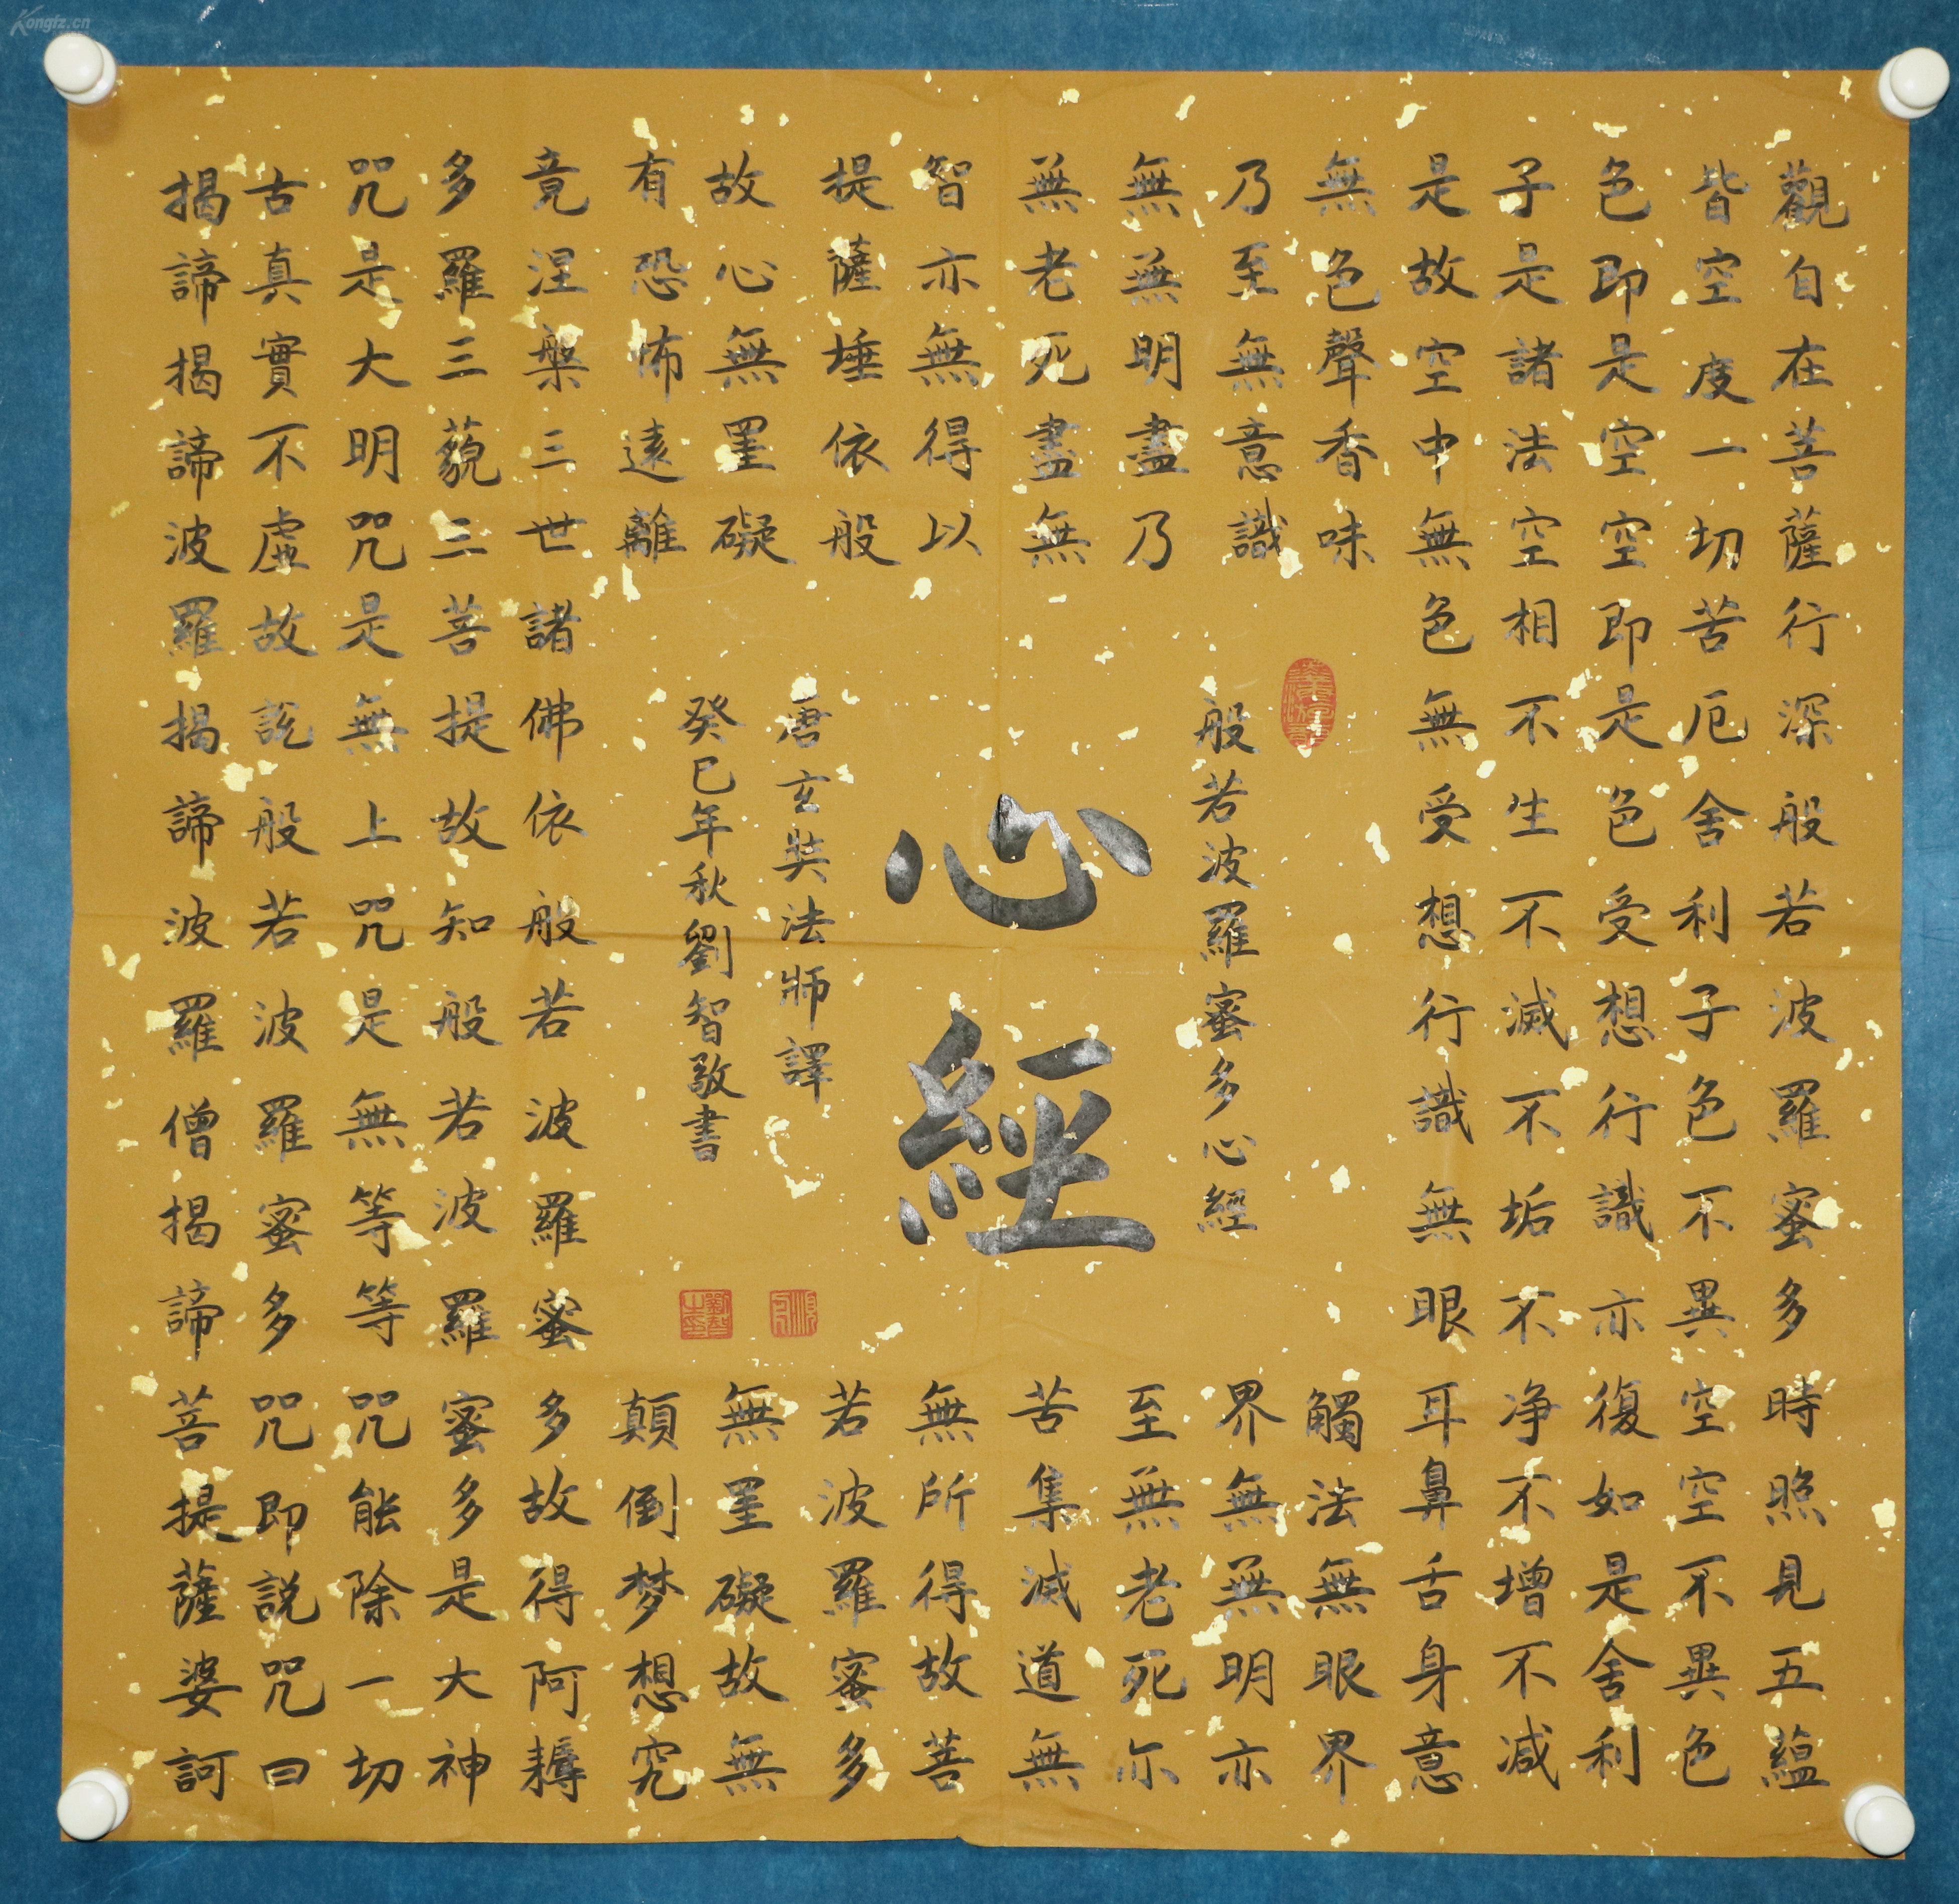 觀自在菩薩行深般若波羅蜜多時照見五蘊
皆空度一切苦厄舍利子色不異空空不異色
色即是空空即是色受想行識亦復如是舍利
子是諸法空相不生不滅不垢不净不增不減
是故空中無色無受想行識無眼耳鼻舌身意
無色聲香味觸法無眼界
乃至無意識界無無明亦
無無明盡乃至無老死亦
無老死盡無苦集滅道無
智亦無得以無所得故菩
提薩埵依般若波羅蜜多
故心無罣礙無罣礙故無
有恐怖遠離顛倒梦想究
竟涅槃三世諸佛依般若波羅蜜多故得阿耨
多羅三藐三菩提故知般若波羅蜜多是大神
咒是大明咒是無上咒是無等等咒能除一切
古真實不虛故説般若波羅蜜多咒即説咒曰
揭諦揭諦波羅揭諦波羅僧揭諦菩提薩婆訶
般若波羅蜜多心經
心經
唐玄奘法師譯
癸巳年秋劉智敬書
劉智之印
Kongfz.cn